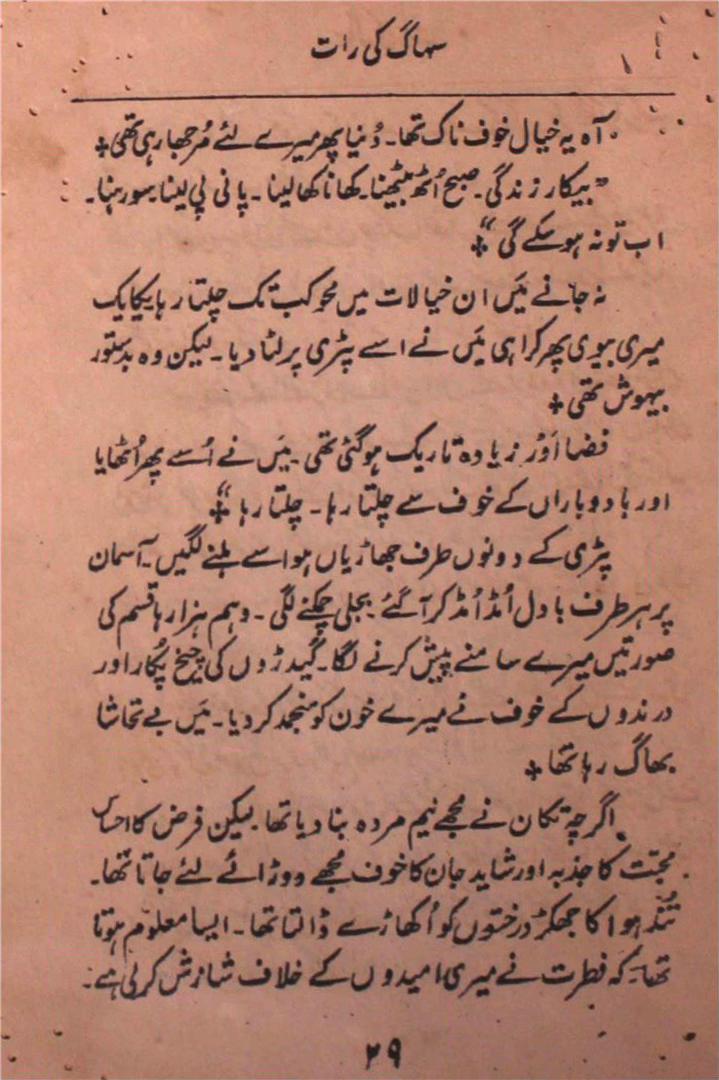 سہاگ کی رات
آہ یہ خیال خوف ناک تھا۔ دُنیا پھر میرے لئے مُرجھا رہی تھی +
"بیکار زندگی۔ صبح اُٹھ بیٹھنا۔ کھانا کھا لینا۔ پانی پی لینا۔ سو رہنا۔
اب تو نہ ہو سکے گی" +
نہ جانے مَیں ان خیالات میں محو کب تک چلتا رہا۔ یکایک
میری بیوی پھر کراہی مَیں نے اسے پٹڑی پر لٹا دیا۔ لیکن وہ بدستور
بیہوش تھی +
فضا اَوْر زیادہ تاریک ہو گئی تھی۔ مَیں نے اُسے پھر اُٹھایا
اور باد و باراں کے خوف سے چلتا رہا۔ چلتا رہا" +
پٹڑی کے دونوں طرف جھاڑیاں ہوا سے ہلنے لگیں۔ آسمان
پر ہر طرف بادل اُمڈ اُمڈ کر آ گئے۔ بجلی چمکنے لگی۔ وہم ہزارہا قسم کی
صورتیں میرے سامنے پیش کرنے لگا۔ گیدڑوں کی چیخ پُکار اور
درندوں کے خوف نے میرے خون کو منجمد کر دیا۔ مَیں بے تحاشا
بھاگ رہا تھا +
اگرچہ تکان نے مجھے نیم مردہ بنا دیا تھا۔ لیکن فرض کا احساس
محبّت کا جذبہ اور شاید جان کا خوف مجھے دوڑائے لئے جاتا تھا۔
تُند ہوا کا جھکڑ درختوں کو اُکھاڑے ڈالتا تھا۔ ایسا معلوم ہوتا
تھا۔ کہ فطرت نے میری امیدوں کے خلاف سازش کر لی ہے۔
۲۹